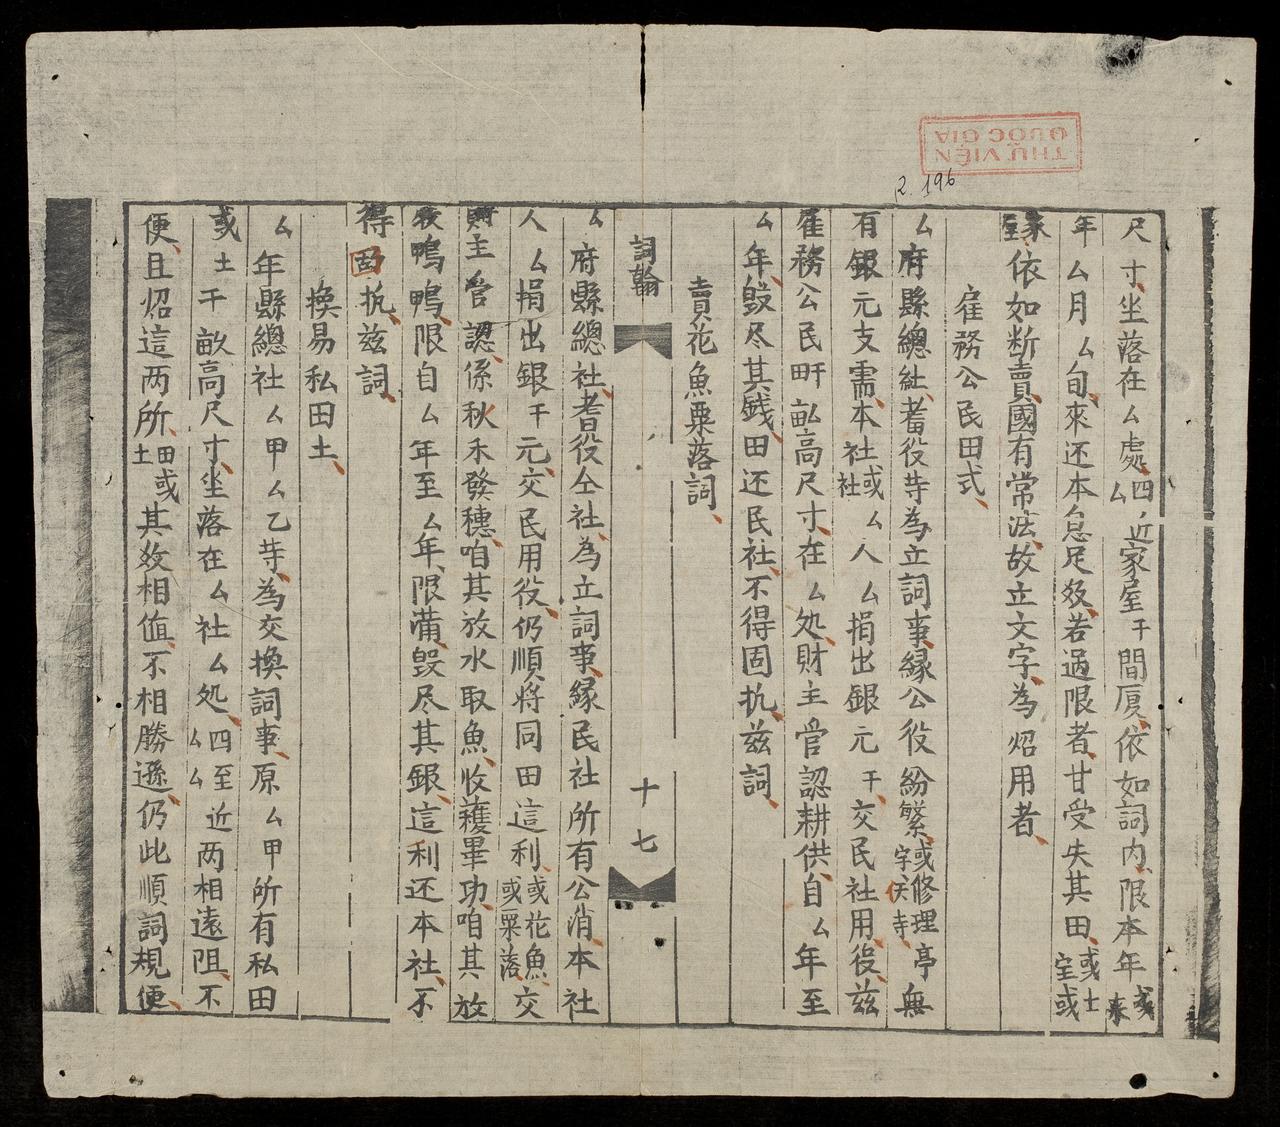 尺寸坐落在厶處四厶近家屋干間厦依如詞内限本年或
年厶月厶旬來还本息足数若過限者甘受失其田或土或
依如断賣國有常法故立文字為炤用者
雇務公民田式
厶府縣總社耆役等為立詞事縁公役紛繁或修理亭無
有銀元支需本社或社厶人厶捐出銀元干交民社用役茲
雇務公民田干畝高尺寸在厶処財主官認耕供自厶年至
厶年毀尽其銭田还民社不得固抗茲詞
賣花魚粟落詞
詞翰
十七
厶府縣總社耆役仝社為立詞事縁民社所有公消本社
人厶捐出銀干元交民用役仍順將同田這利或花魚或粟落交
財主官認係秋禾發穗咱其放水取魚收穫畢功咱其放
鴨鴨限自厶年至厶年限滿毀尽其銀這利还本社不
得固抗茲詞
換易私田土
厶年縣總社厶甲厶乙等為交換詞事原厶甲所有私田
或土干畝高尺寸坐落在厶社厶処四至厶厶近两相遠阻不
便且炤這两所田或土其数相值不相勝遜仍此順詞規便
THƯ VIỆN
QUỐC GIA
R.196